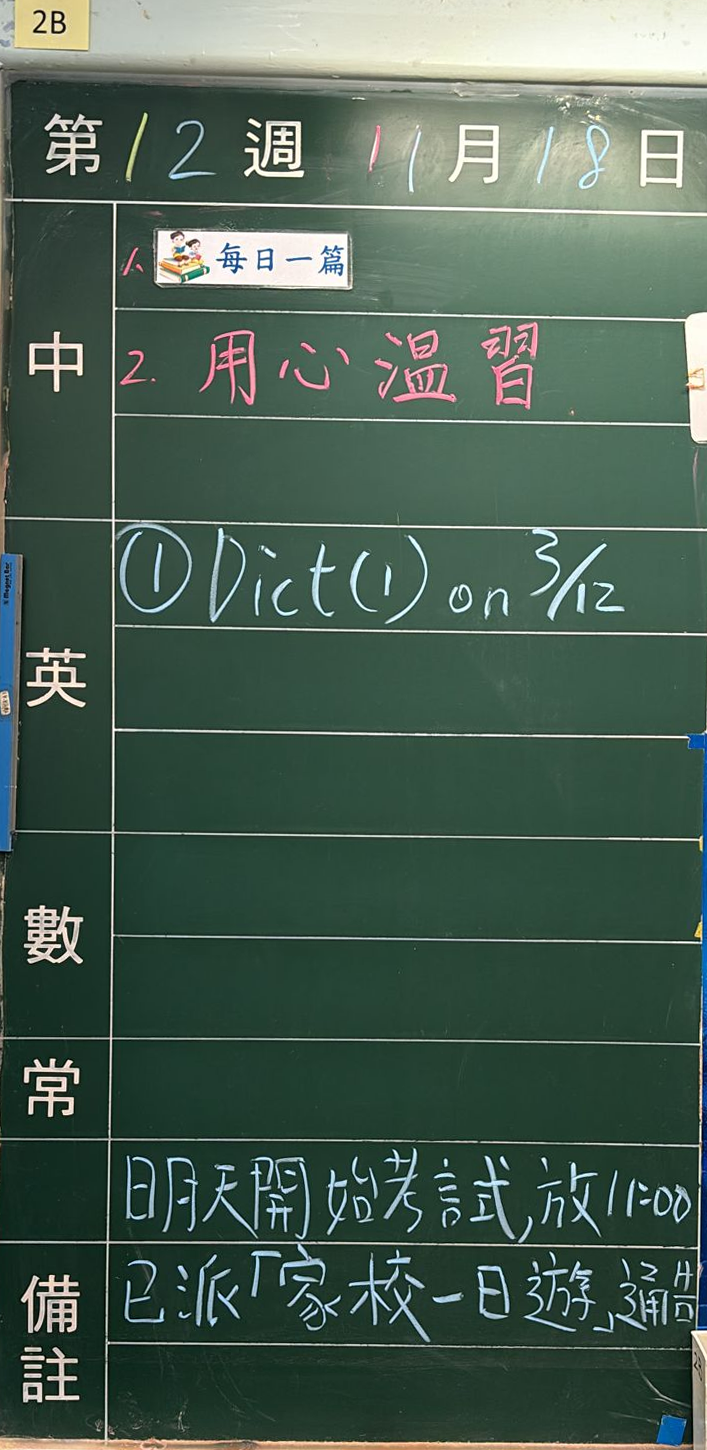 2B
第12週 11月18日
中
1. 每日一篇
2. 用心溫習
英
① Dict(1) on 3/12
數
常
備註
明天開始考試,放11:00
已派「家校一日遊」通告